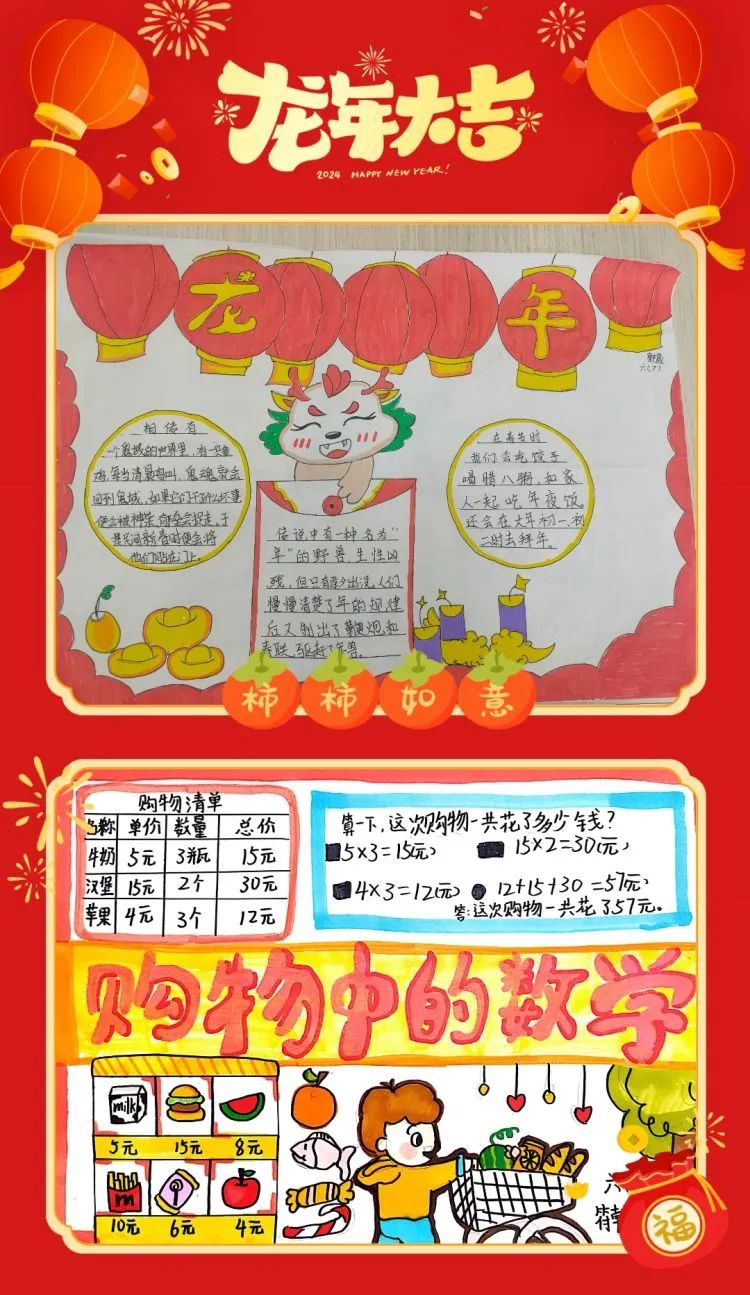 龙年大吉
2024 HAPPY NEW YEAR!
龙
年
六(7)
相传有
一个鬼域的世界里，有一只金
鸡，每当清晨鸡叫，鬼魂就会
回到鬼域，如果它们干了什么坏事
便会被神荼、郁垒会捉走。于
是民间新春时便会将
他们贴在门上。
传说中有一种名为“
年”的野兽生性凶
残，但只有除夕出没，人们
慢慢清楚了年的规律
后又制出了鞭炮和
春联，驱赶了年兽。
在春节时
我们会吃饺子
喝腊八粥，和家
人一起吃年夜饭。
还会在大年初一、初
二时去拜年。
柿柿如意
购物清单
名称 单价 数量 总价
牛奶 5元 3瓶 15元
汉堡 15元 2个 30元
苹果 4元 3个 12元
算一下，这次购物一共花了多少钱？
5×3=15(元) 15×2=30(元)
4×3=12(元) 12+15+30=57(元)
答：这次购物一共花了57元。
购物中的数学
milk
5元 15元 8元
m
10元 6元 4元
六
福